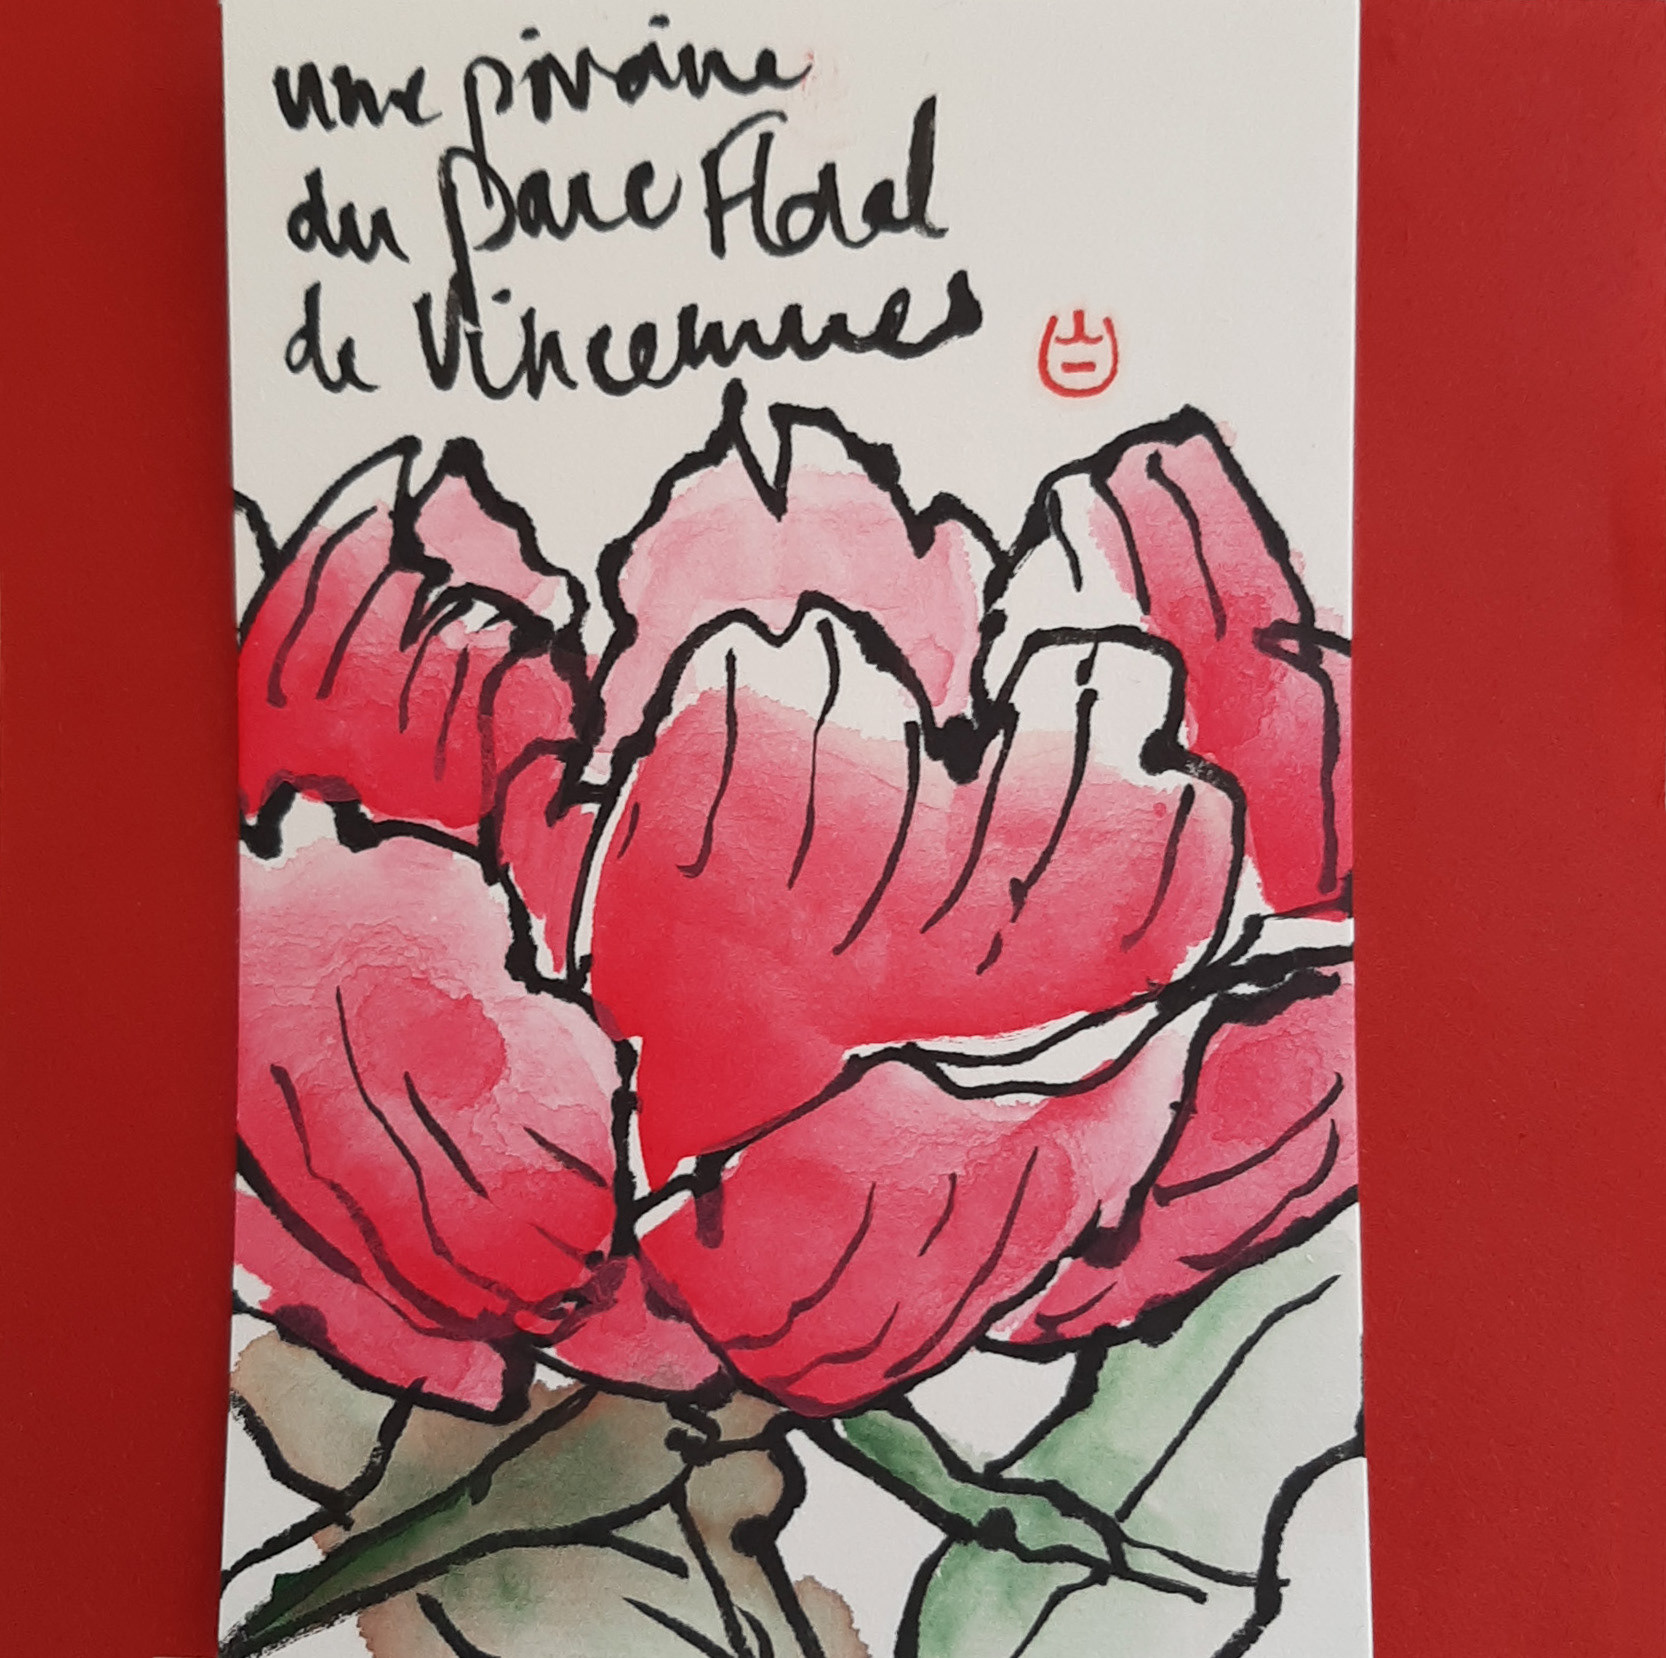 une pivoine
du Parc Floral
de Vincennes